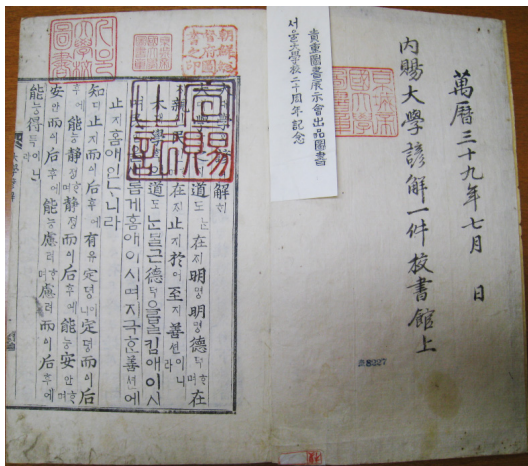 萬曆三十九年七月 日
內賜大學諺解一件校書館上
貴重圖書展示會出品圖書
서울大學校二十周年記念
朝鮮總督府圖書之印
宣賜之記
解
道도ᄂᆞᆫ在ᄌᆡ明명明명德덕ᄒᆞ며在
在ᄌᆡ止지於어至지善션이니라
道도ᄂᆞᆫᄇᆞᆯ근德덕을ᄇᆞᆯ킴애이시
게홈애이시며지극ᄒᆞᆫ善션에
止지홈애인ᄂᆞ니라
知디止지而이后후에有유定뎡이니定뎡而이后
후에能능靜졍ᄒᆞ며靜졍而이后후에能능安안ᄒᆞ며
安안而이后후에能능慮려ᄒᆞ며慮려而이后후에
能능得득이니라